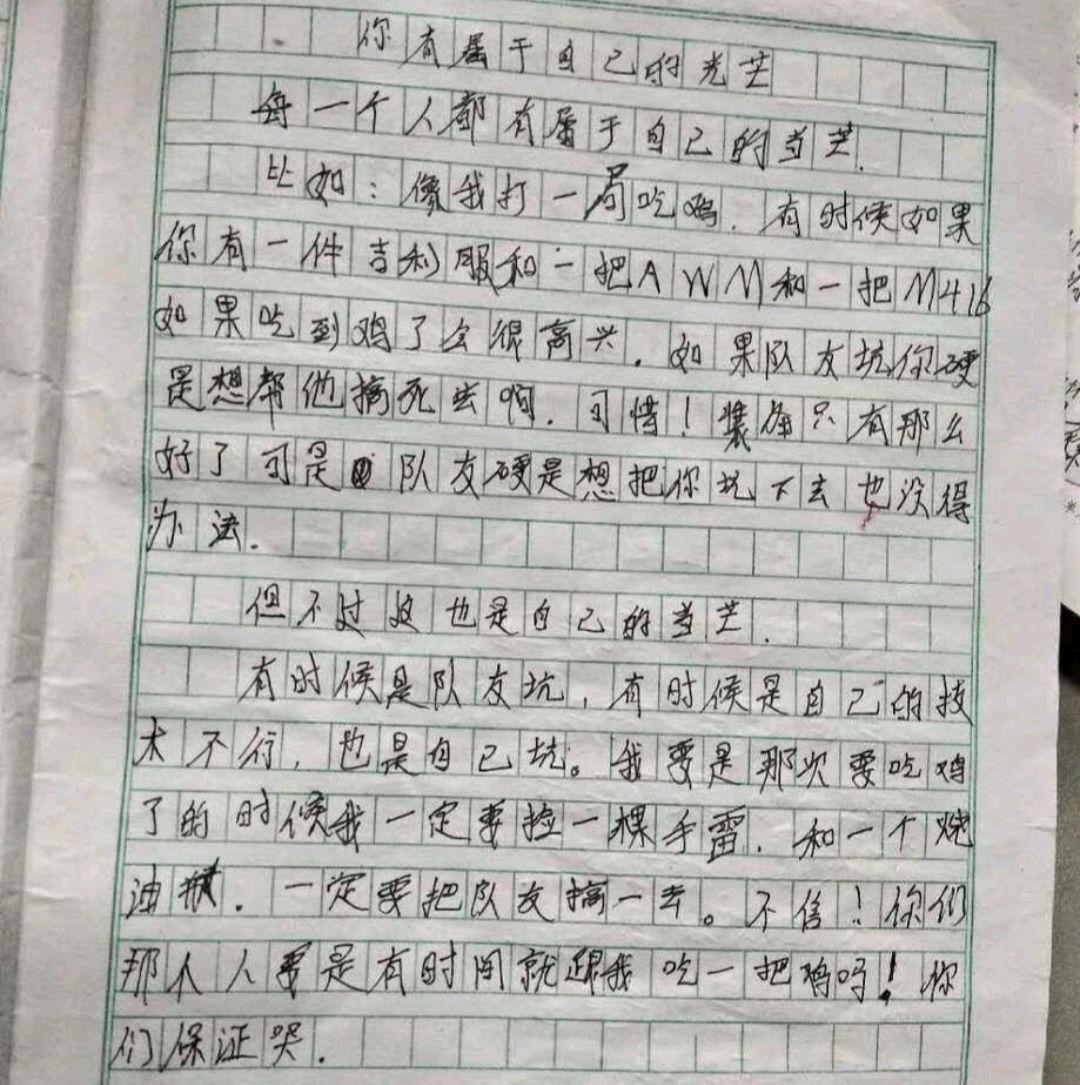 你有属于自己的光芒
每一个人都有属于自己的芒.
比如:像我打一局吃鸡.有时候如果
你有一件吉利服和一把AWM和一把M416
如果吃到鸡了会很高兴.如果队友坑你硬
是想帮他搞死去啊.可惜!装备只有那么
好了可是队友硬是想把你坑下去也没得
办法.
但不过这也是自己的芒.
有时候是队友坑,有时候是自己的技
术不行,也是自己坑。我要是那次要吃鸡
了的时候我一定要捡一棵手雷.和一个烧
油瓶.一定要把队友搞一去。不信!你们
那个人要是有时间就跟我吃一把鸡吗!你
们保证哭.